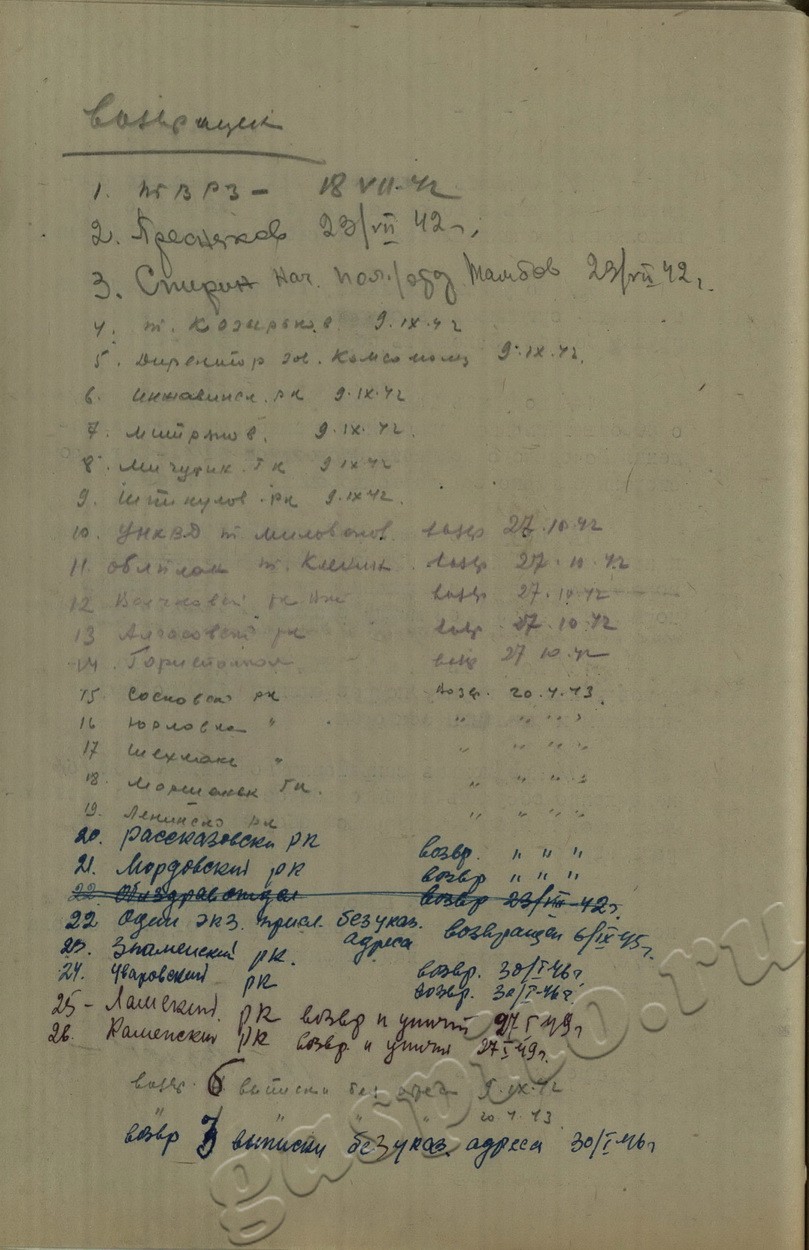 Возвращен
1. ТВРЗ – 18 VII.42
2. Пресняков 23/VII 42 г.
3. Стерин нач. пол./отд Тамбов 23/VII 42 г.
4. т. Козырьков 9.IX.42
5. Директор зав. Комсомолец 9.IX.42.
6. Инжавинск. рк 9.IX.42
7. 9.IX.42.
8. Мичурин. Гк 9 IX 42
9. рк 9.IX 42.
10. УНКВД т Милованов возвр 27.10.42
11 Облплан т. возвр 27.10.42
12 рк возвр 27.10.42
13 Алгасовский рк возвр 27.10.42
14. возвр 27 10.42
15 Сосновский рк Возвр. 20.1.43.
16 Юрловка " " " " "
17 Шехмань " " " " "
18. Моршанск Гк. " " " "
19. Ленинский рк " " " "
20. Рассказовский РК возвр. " " "
21. Мордовский рк возвр " " "
22 Облздравотдел возвр 23/VII-42 г.
22 Один экз. присл. без указ. адреса возвращен 6/IX 45 г.
23. Знаменский рк. возвр. 30/I-46 г
24. Уваровский рк возвр. 30/I-46 г.
25 – Ламский. рк возвр и уничт 27 I 49 г
26. Каменский рк возвр. и уничт 27 I 49 г.
возвр. 6 выписки без адреса 9.IX.42
" " " " 20.1.43.
возвр 3 выписки без указ. адреса 30/I-46 г
gaspito.ru